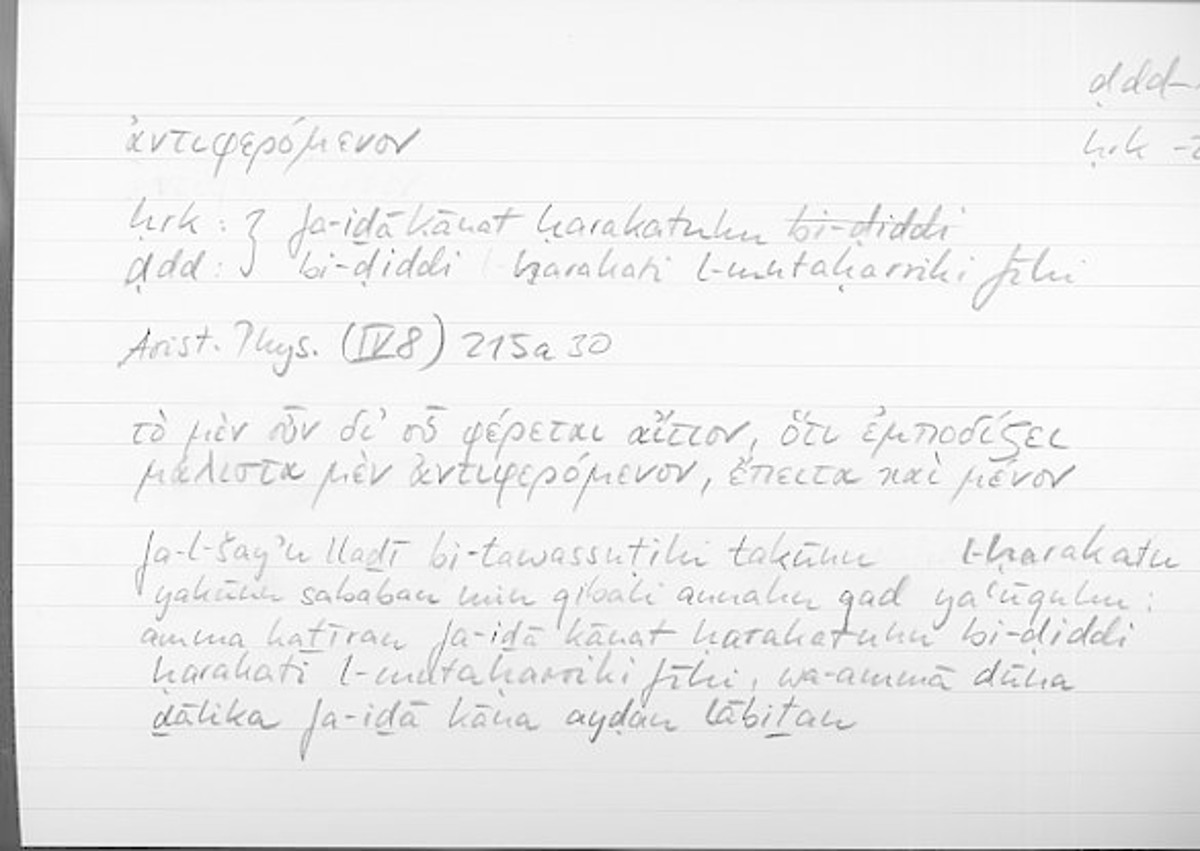 ḍdd-
ἀντιφερόμενον
ḥrk -
ḥrk : } fa-iḏā kānat ḥarakatuhu bi-ḍiddi
ḍdd : } bi-ḍiddi ḥarakati l-mutaḥarriki fīhi
Arist. Phys. (IV 8) 215a 30
τὸ μὲν οὖν δι' οὗ φέρεται αἴτιον, ὅτι ἐμποδίζει
μάλιστα μὲν ἀντιφερόμενον, ἔπειτα καὶ μένον
fa-l-šayʾu llaḏī bi-tawassuṭihi takūnu l-ḥarakatu
yakūnu sababan min qibali annahu qad yaʿūquhu :
amma kaṯīran fa-iḏā kānat ḥarakatuhu bi-ḍiddi
ḥarakati l-mutaḥarriki fīhi, wa-ammā dūna
ḏālika fa-iḏā kāna ayḍan lābiṯan